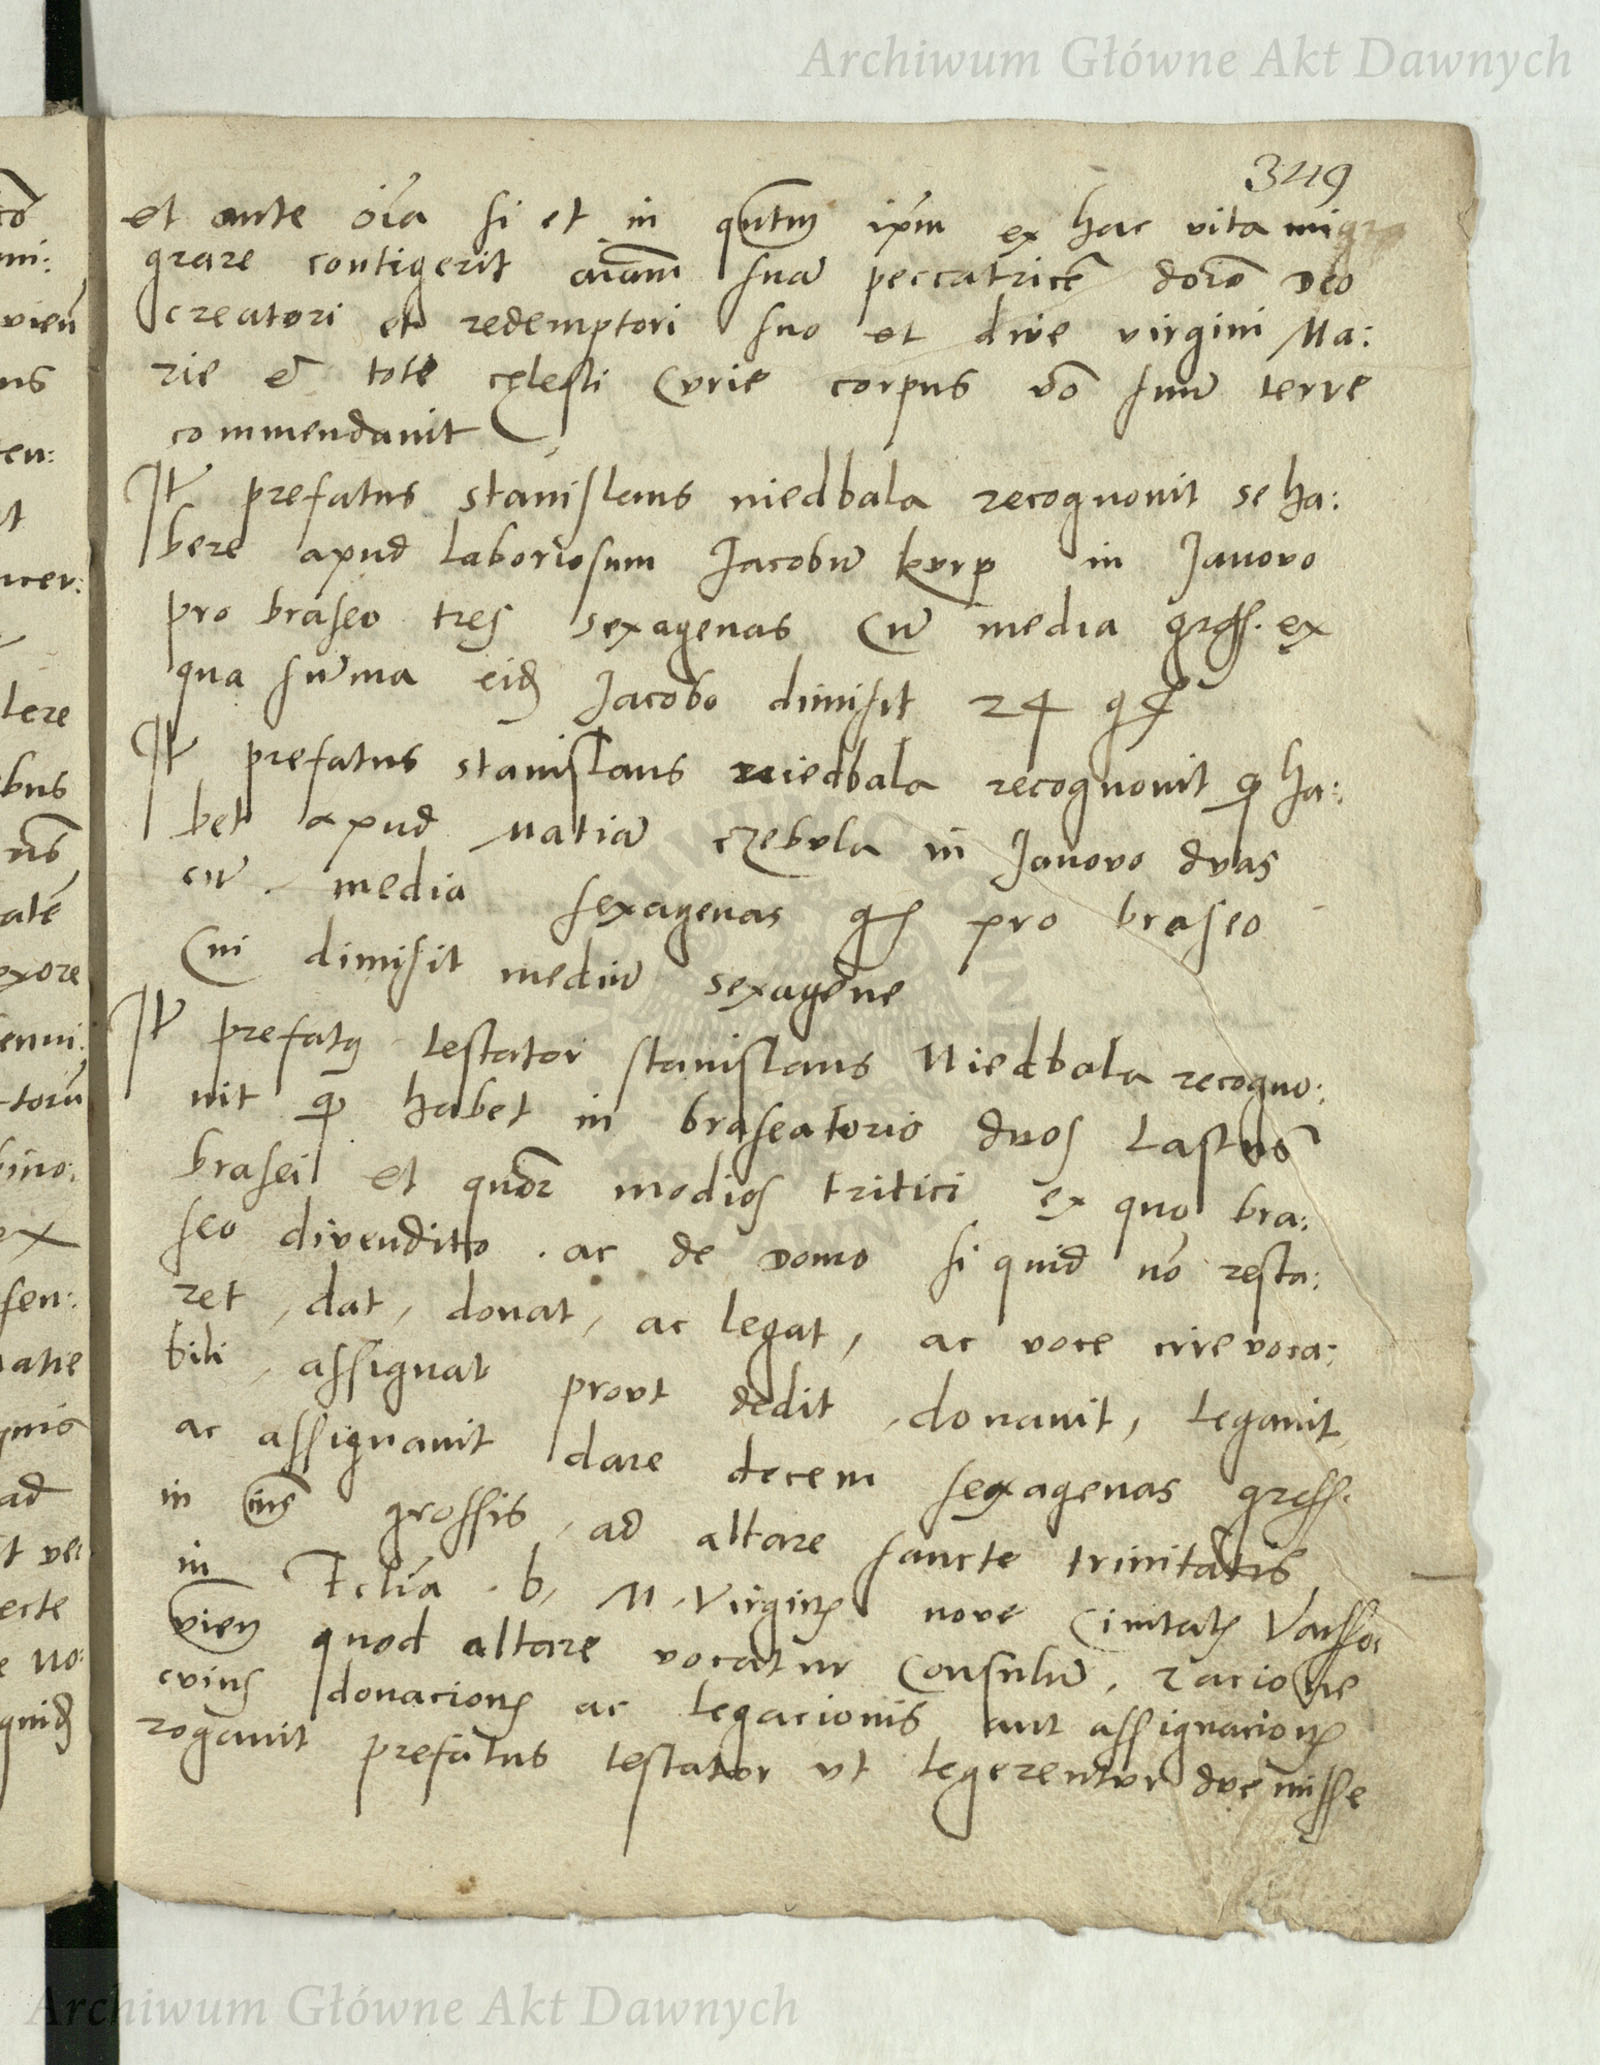 Archiwum Główne Akt Dawnych
349
et ante oĩa si et in qũntũ ipm̃ ex hac vita migra
grare contigerit aĩam suã peccatricẽ  Deo
creatori et redemptori suo et dive virgini Ma:
rie et tote celesti Curie corpus vo͂ suũ terre
commendavit
It̃ prefatus Stanislaus Niedbala recognovit se ha:
bere apud laboriosum Jacobũ kurp in Janovo
pro braseo tres sexagenas cũ media gross. ex
qua sũma eid̃ Jacobo dimisit 24 gr̃
It̃ prefatus Stanislaus Niedbala recognovit q̃ ha:
bet apud Matiã czebula in Janovo duas
cũ media sexagenas gr̃ pro braseo
Cui dimisit mediũ sexagene
It̃ prefatq̃ testator Stanislaus Niedbala recogno:
vit q̃ habet in braseatorio duos Lastus
brasei et quor̃ modios tritici ex quo bra:
seo divendito . ac de Domo si quid nõ resta:
ret , dat , donat , ac legat , ac voce irrevoca:
bili , assignat prout dedit , donavit , legavit
ac assignavit dare decem sexagenas gross.
in  grossis , ad altare sancte trinitatis
in Ecl̃ia . b . M . Virginis nove Civitatis Varsso
vieñ quod altare vocatur Consulũ . racione
cuius donacionis ac legacionis aut assignacionis
rogavit prefatus testator ut legerentur due misse
Archiwum Główne Akt Dawnych